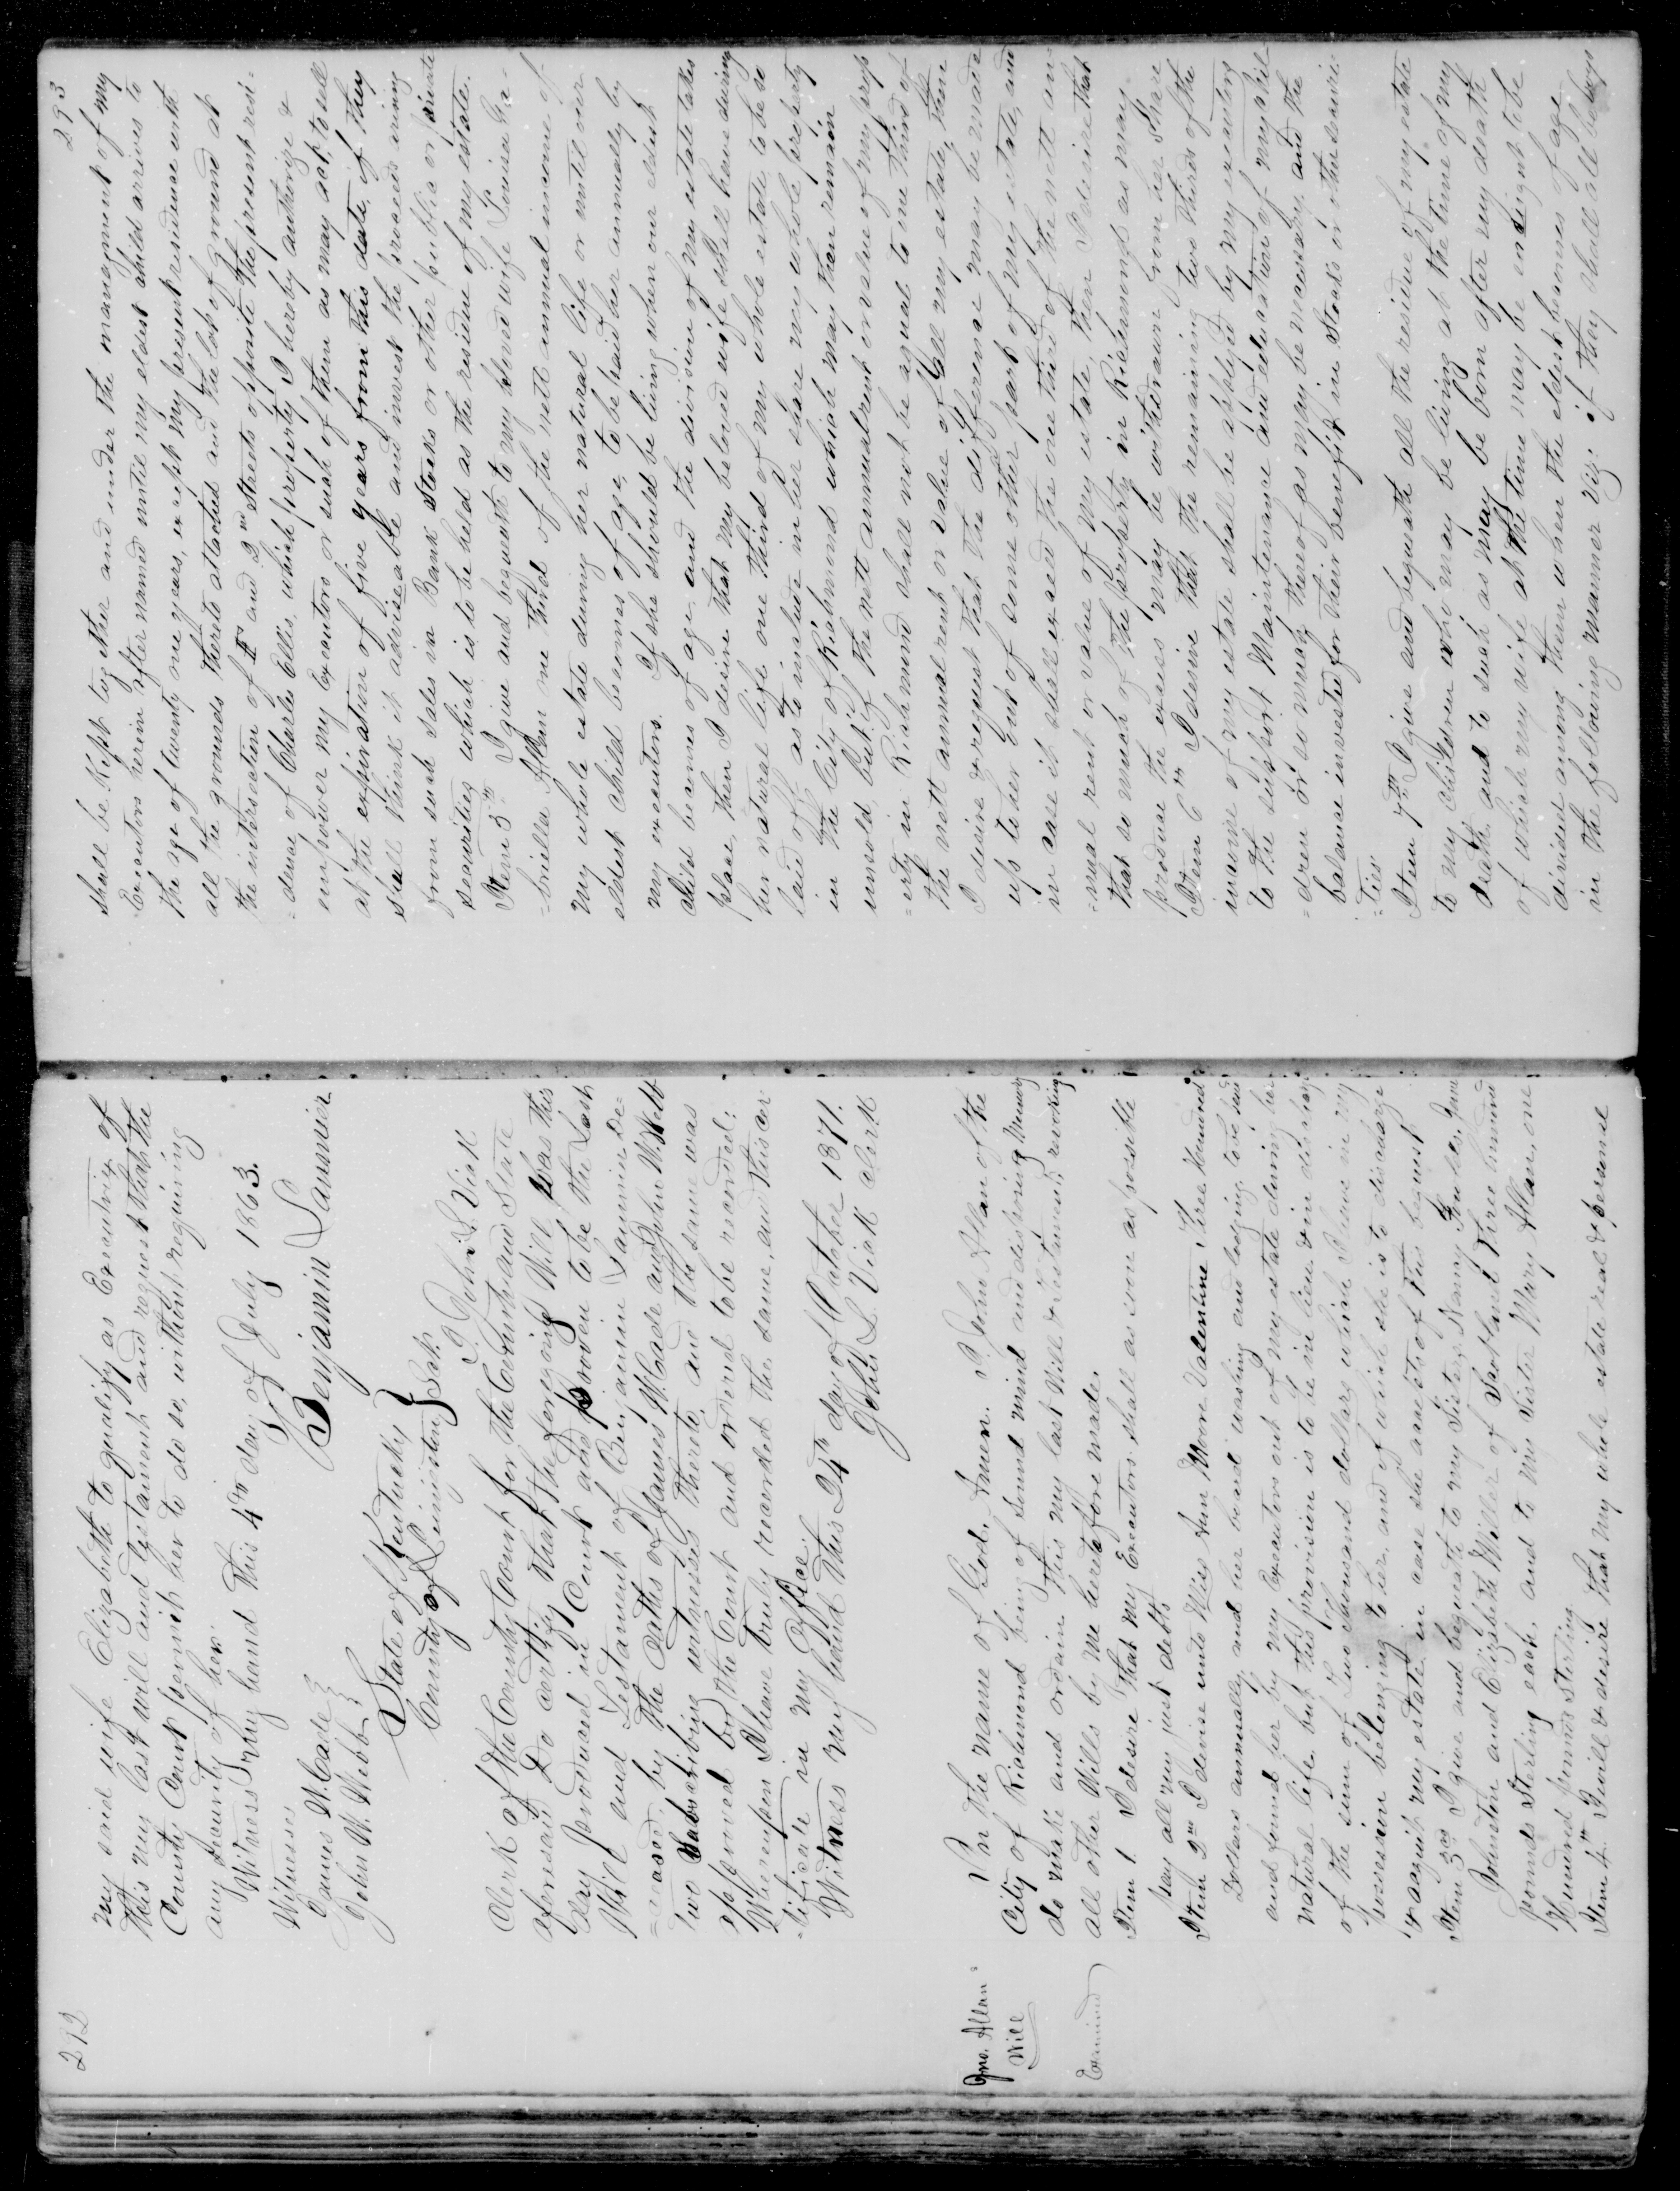 292
my said wife Elizabeth to qualify as Executrix of
this my last will and testament and request that the
County Court permit her to do so, without requiring
any security of her.
Witness my hand this 4th day of July 1863.
Benjamin Lannier
Witnesses
James W. Cade
John W. Webb
State of Kentucky
County of Livingston } Sct.
I John L. Vick
Clerk of the County Court for the County and State
aforesaid Do certify that the foregoing Will was this
day produced in Court and proven to be the Last
Will and Testament of Benjamin Lannier De=
=ceased, by the Oaths of James W. Cade and John W. Webb
two subscribing witnesses thereto, and the same was
approved by the Court and ordered to be recorded:
Whereupon I have truly recorded the same, and this cer
=tificate in my Office.
Witness my hand this 24th day of October 1871.
John L. Vick Clerk
Jno. Allan's
Will
Examined
In the name of God, Amen. I John Allan of the
City of Richmond being of sound mind and disposing memory
do make and ordain this my last Will & Testament, revoking
all other Wills by me heretofore made.
Item 1. I desire that my Executors shall as soon as possible
pay all my just debts
Item 2nd I devise unto Miss Ann Moore Valentine, Three Hundred
Dollars annually, and her board washing and lodging to be paid
and found her by my Executors out of my estate during her
natural life, but this provision is to be in lieu & in discharge
of the sum of Two thousand dollars which I have in my
possession belonging to her, and of which she is to discharge
& acquit my estate, in case she accepts of this bequest
Item 3rd I give and bequeath to my Sisters Nancy Fowlds, Jane
Johnston and Elizabeth Miller of Scotland Three hundred
pounds Sterling each, and to my Sister Mary Allan, one
Hundred pounds Sterling.
Item 4th I will & desire that my whole estate real & personal
293
shall be kept together and under the management of my
Executors herein after named until my eldest child arrives to
the age of twenty one years, except my present residence with
all the grounds thereto attached and the lot of ground at
the intersection of F and 2nd Streets opposite the present resi=
=dence of Charles Ellis, which property I hereby authorize &
empower my Executors or such of them as may act, to sell
at the expiration of five years from this date, if they
shall think it adviseable and invest the proceeds arising
from such sales in Bank Stocks or other public or private
securities which is to be held as the residue of my estate.
Item 5th I give and bequeath to my beloved wife Louisa Ga=
=briella Allan one third of the nett annual income of
my whole estate during her natural life or until our
eldest child becomes of age, to be paid her annually by
my executors. If she should be living when our eldest
child becomes of age and the division of my estate takes
place, then I desire that my beloved wife shall have during
her natural life one third of my whole estate, to be so
laid off as to include in her share my whole property
in the City of Richmond which may then remain
unsold, but if the nett annual rent or value of my prop
=erty in Richmond shall not be equal to one third of
the nett annual rent or value of all my estate, then
I desire & request that the difference may be made
up to her out of some other part of my estate, and
in case it shall exceed the one third of the nett an=
=nual rent or value of my estate, then I desire that
that so much of the property in Richmond as may
produce the excess may be withdrawn from her share
Item 6th I desire that the remaining two thirds of the
income of my estate shall be applyed by my executors
to the support Maintenance and education of my chil
=dren or so much thereof as may be necessary and the
balance invested for their benefit in Stocks or other securi=
=ties
Item 7th I give and bequeath all the residue of my estate
to my children who may be living at the time of my
death, and to such as may be born after my death
of which my wife at the time may be ensient to be
divided among them when the eldest becomes of age
in the following manner Viz: if they shall all be boys